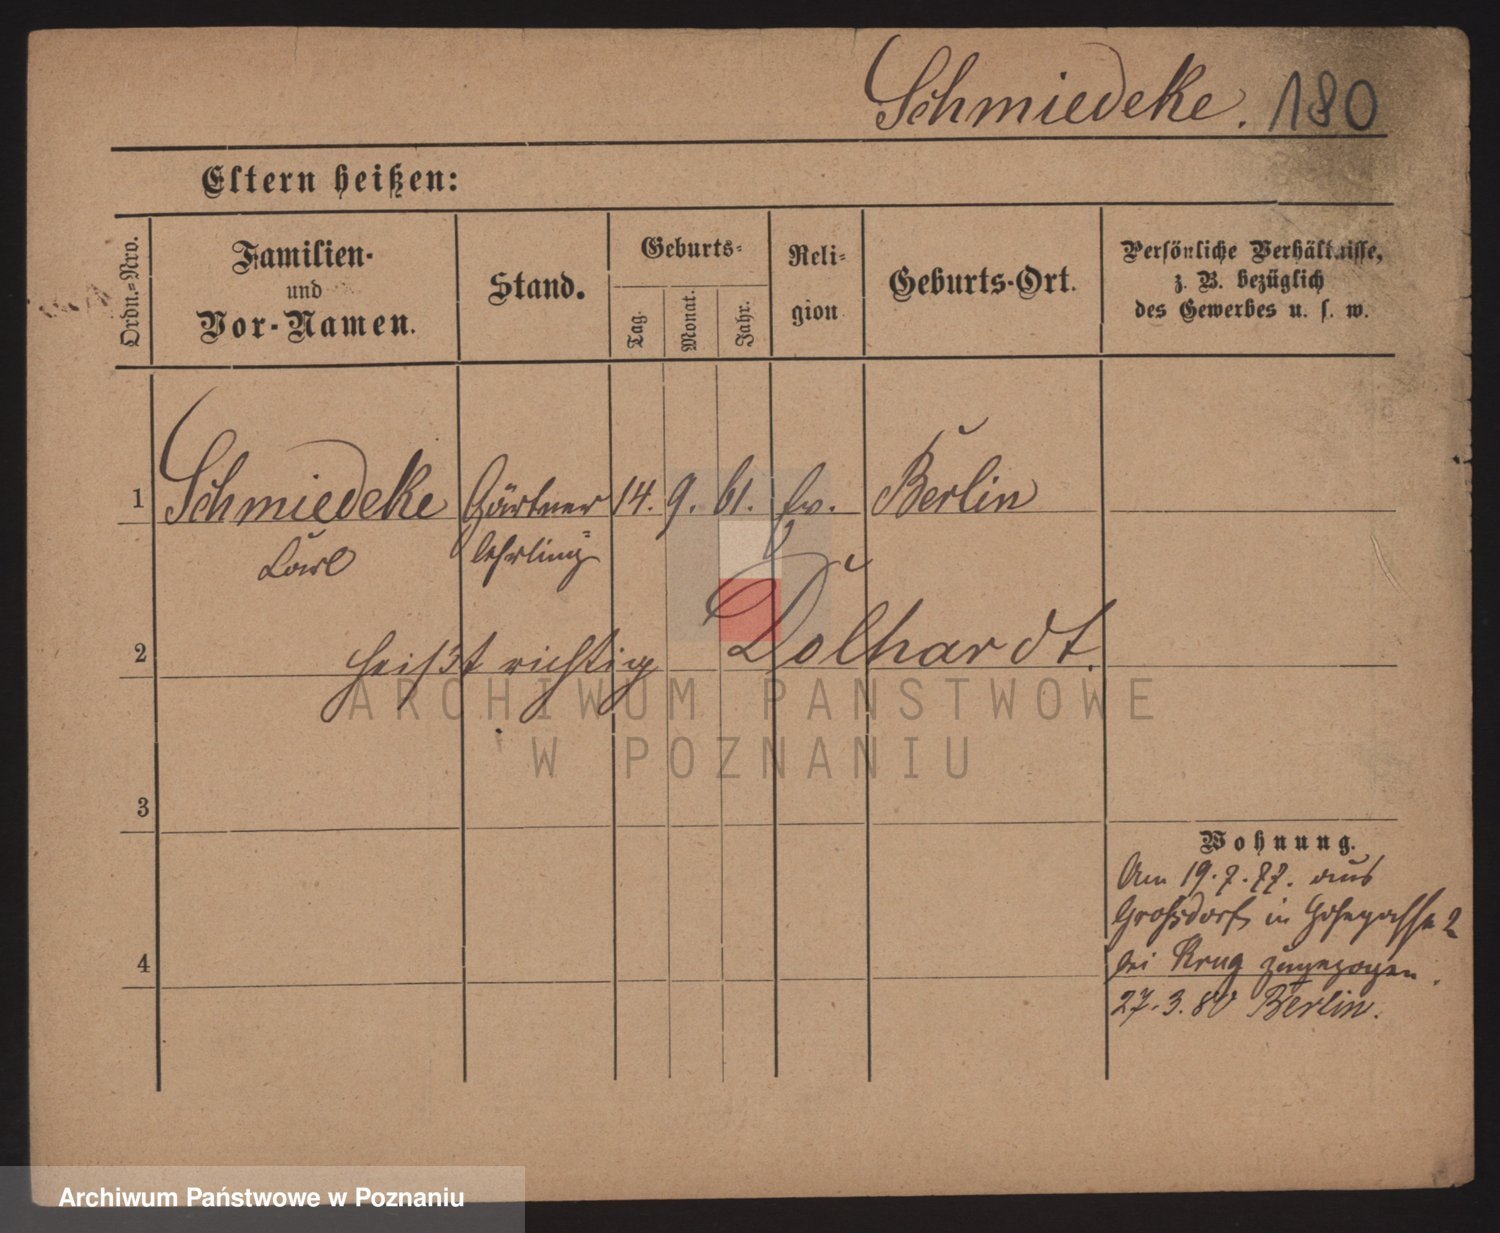 Schmiedeke. 180
Eltern heißen:
Ordn.-Nro.
Familien-
und
Vor-Namen.
Stand.
Geburts-
Tag.
Monat.
Jahr.
Reli-
gion
Geburts-Ort.
Persönliche Verhältnisse,
z. B. bezüglich
des Gewerbes u. s. w.
1 Schmiedeke Gärtner 14. 9. 61. Ev. Berlin
Carl lehrling
2 heißt richtig Dolhardt.
ARCHIWUM PAŃSTWOWE
W POZNANIU
3
Wohnung.
Am 19.7.77. aus
in 2
4 bei Krug zugezogen.
27.3.80 Berlin.
Archiwum Państwowe w Poznaniu